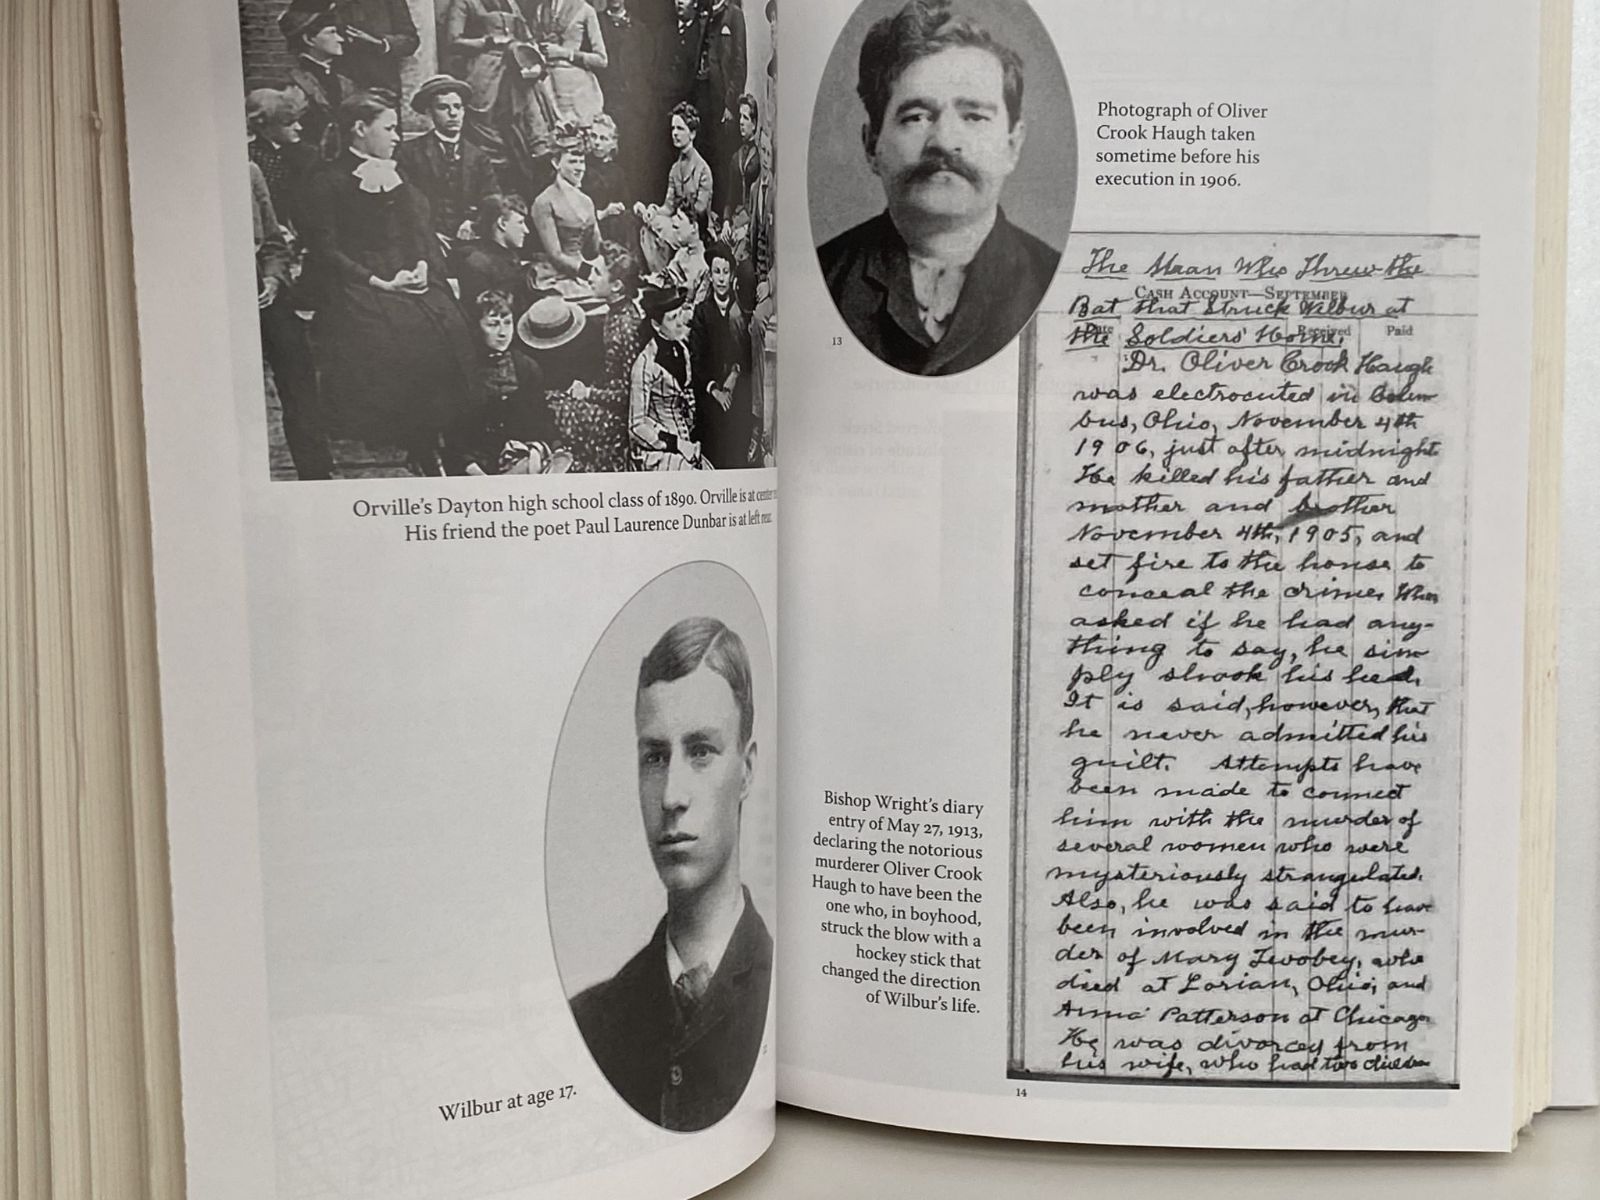 Orville's Dayton high school class of 1890. Orville is at center
His friend the poet Paul Laurence Dunbar is at left rear.
Wilbur at age 17.
Photograph of Oliver
Crook Haugh taken
sometime before his
execution in 1906.
13
Bishop Wright's diary
entry of May 27, 1913,
declaring the notorious
murderer Oliver Crook
Haugh to have been the
one who, in boyhood,
struck the blow with a
hockey stick that
changed the direction
of Wilbur's life.
The Maan Who Threw the
CASH ACCOUNT—SEPTEMBER
Bat that Struck Wilbur at
Date Received Paid
the Soldiers' Home.
Dr. Oliver Crook Haugh
was electrocuted in Colum-
bus, Ohio, November 4th
1906, just after midnight.
He killed his father and
mother and brother
November 4th, 1905, and
set fire to the house to
conceal the crime. When
asked if he had any-
thing to say, he sim-
ply shook his head.
It is said, however, that
he never admitted his
guilt. Attempts have
been made to connect
him with the murder of
several women who were
mysteriously strangulated.
Also, he was said to have
been involved in the mur-
der of Mary Twobey, who
died at Lorian, Ohio, and
Anna Patterson at Chicago
He was divorced from
his wife, who had two children
14